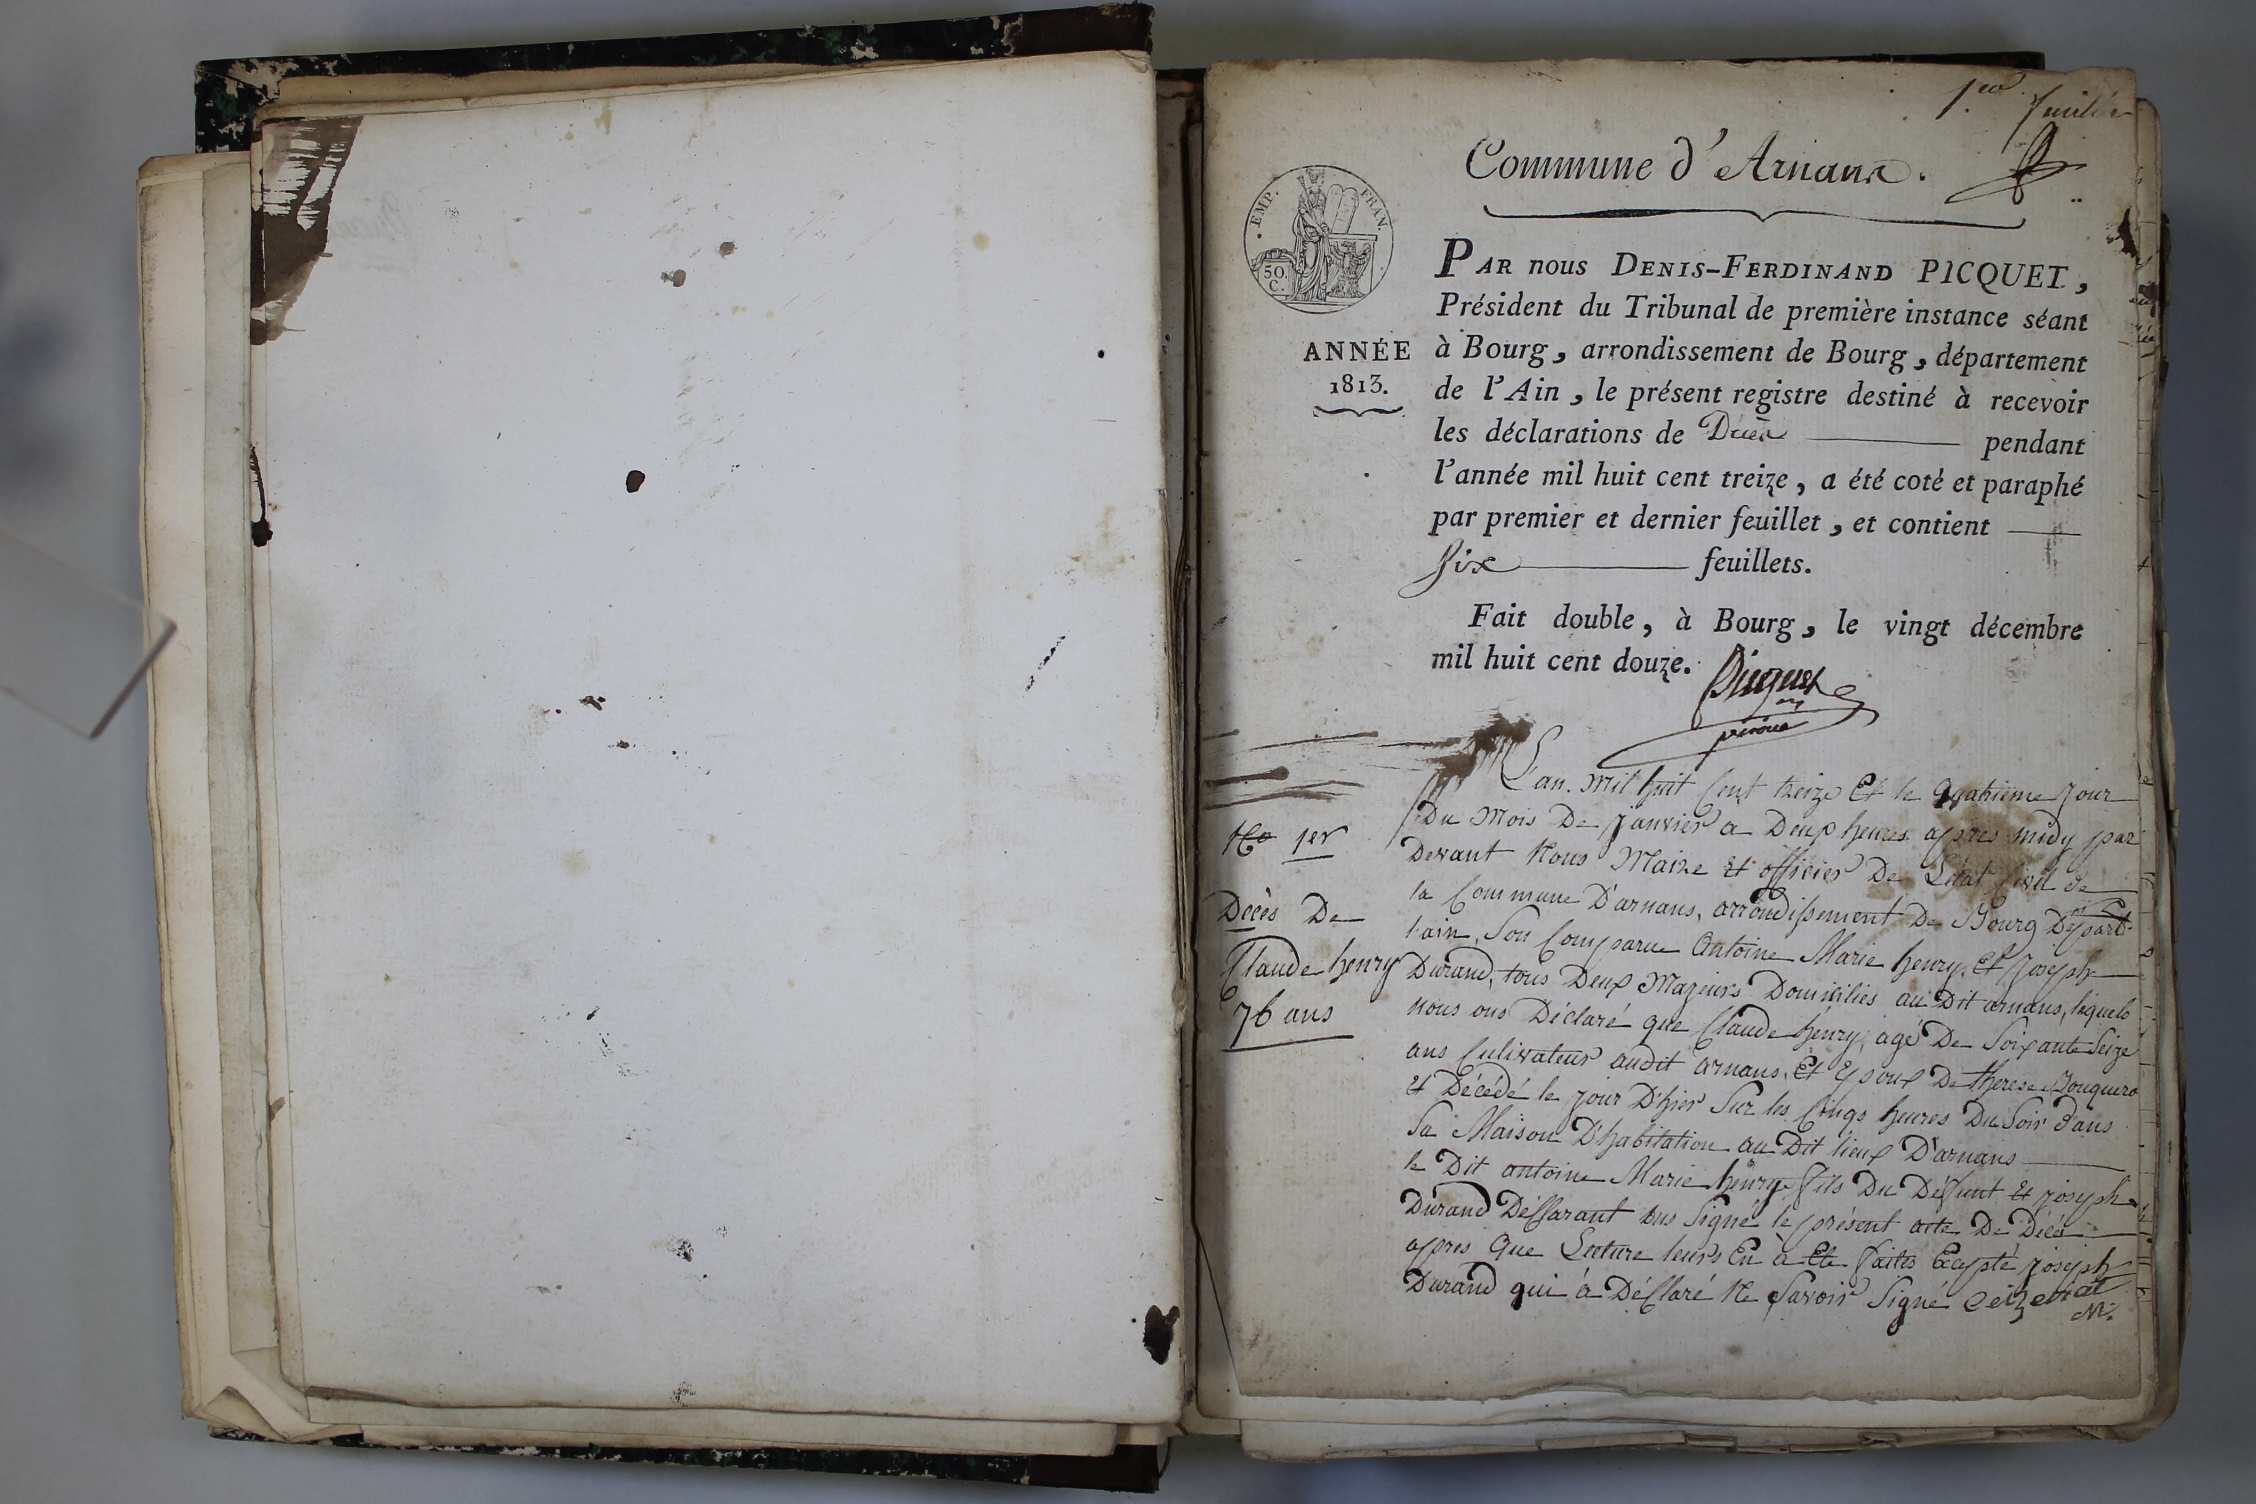 1.er feuillet
Commune d'Arnans.
EMP. FRAN.
50. C.
ANNÉE
1813.
PAR nous DENIS-FERDINAND PICQUET,
Président du Tribunal de première instance séant
à Bourg, arrondissement de Bourg, département
de l'Ain, le présent registre destiné à recevoir
les déclarations de Décès pendant
l'année mil huit cent treize, a été coté et paraphé
par premier et dernier feuillet, et contient
Six feuillets.
Fait double, à Bourg, le vingt décembre
mil huit cent douze.
Picquet
No 1er
Décès De
Claude henry
76 ans
L'an mil huit Cent treize Et le quatrieme jour
Du Mois De Janvier a Deux heures apres midy par
Devant Nous Maire et officier De L'état Civil de
la Commune D'arnans, arrondissement De Bourg Départ.
l'ain, Son Comparue Antoine Marie henry, Et Joseph
Durand, tous Deux Majeurs Domiciliés au Dit arnans, lequels
nous ons Déclaré que Claude henry, agé De Soixante Seize
ans Cultivateur audit arnans, Et Epoux De therese
et Décédé le jour D'hier Sur les Cinqs heures Du Soir dans
Sa Maison D'habitation au Dit lieux D'arnans
le Dit antoine Marie henry fils Du Défunt et joseph
Durand Déclarant ons Signé le présent acte De Décés
apres Que Lecture leurs En à Eté faites Excepté joseph
Durand qui à Déclaré Ne Savoir Signé